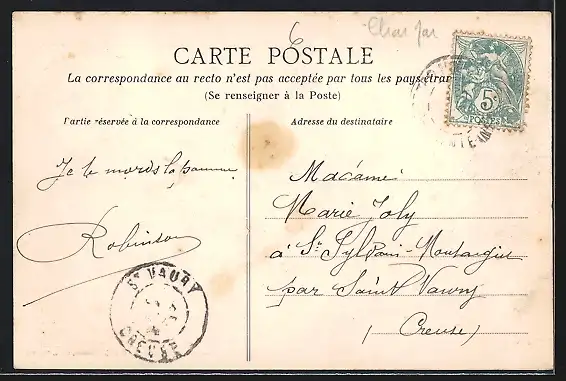 6
CARTE POSTALE
La correspondance au recto n'est pas acceptée par tous les pays étran
(Se renseigner à la Poste)
Partie réservée à la correspondance
Adresse du destinataire
5c
POSTES
Je te mords la pomme
Robinson
Madame
Marie Joly
à St Sylvain-Montaigut
par Saint Vaury
(Creuse)
ST VAURY
CREUSE